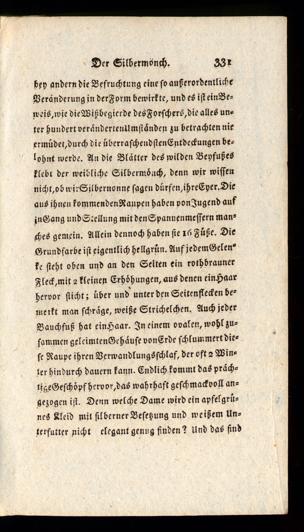 Der Silbermönch. 331
bey andern die Befruchtung eine so außerordentliche
Veränderung in der Form bewirkte, und es ist ein Be-
weis, wie die Wißbegierde des Forschers, die alles un-
ter hundert veränderten Umständen zu betrachten nie
ermüdet, durch die überraschendsten Entdeckungen be-
lohnt werde. An die Blätter des wilden Beyfußes
klebt der weibliche Silbermönch, denn wir wissen
nicht, ob wir Silbernonne sagen dürfen, ihre Eyer. Die
aus ihnen kommenden Raupen haben von Jugend auf
in Gang und Stellung mit den Spannenmessern man-
ches gemein. Allein dennoch haben sie 16 Füße. Die
Grundfarbe ist eigentlich hellgrün. Auf jedem Gelen-
ke steht oben und an den Seiten ein rothbrauner
Fleck, mit 2 kleinen Erhöhungen, aus denen ein Haar
hervor sticht; über und unter den Seitenflecken be-
merkt man schräge, weiße Strichelchen. Auch jeder
Bauchfuß hat ein Haar. In einem ovalen, wohl zu-
sammen geleimten Gehäuse von Erde schlummert die-
se Raupe ihren Verwandlungsschlaf, der oft 2 Win-
ter hindurch dauern kann. Endlich kommt das präch-
tige Geschöpf hervor, das wahrhaft geschmackvoll an-
gezogen ist. Denn welche Dame wird ein apfelgrü-
nes Kleid mit silberner Besetzung und weißem Un-
terfutter nicht elegant genug finden? Und das sind